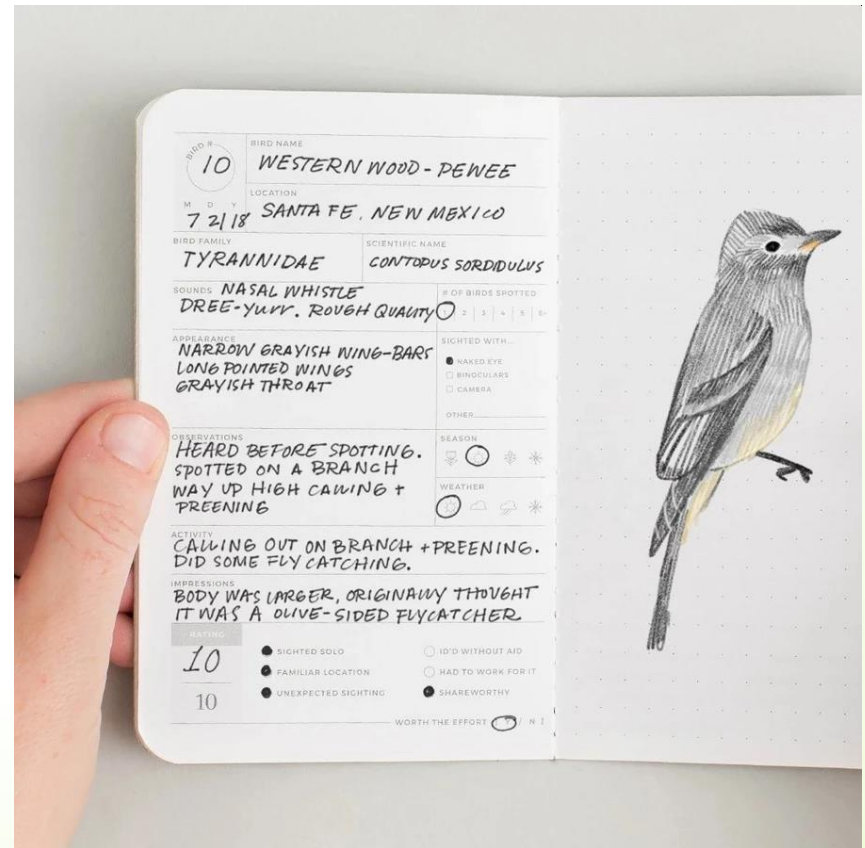 BIRD #
10
BIRD NAME
WESTERN WOOD-PEWEE
LOCATION
SANTA FE, NEW MEXICO
M D Y
7 21 18
BIRD FAMILY
TYRANNIDAE
SCIENTIFIC NAME
CONTOPUS SORDIDULUS
SOUNDS NASAL WHISTLE
DREE-YURR. ROUGH QUALITY
# OF BIRDS SPOTTED
1 2 3 4 5 6+
APPEARANCE
NARROW GRAYISH WING-BARS
LONG POINTED WINGS
GRAYISH THROAT
SIGHTED WITH...
NAKED EYE
BINOCULARS
CAMERA
OTHER
OBSERVATIONS
HEARD BEFORE SPOTTING.
SPOTTED ON A BRANCH
WAY UP HIGH CALLING +
PREENING
SEASON
WEATHER
ACTIVITY
CALLING OUT ON BRANCH + PREENING.
DID SOME FLY CATCHING.
IMPRESSIONS
BODY WAS LARGER, ORIGINALLY THOUGHT
IT WAS A OLIVE-SIDED FLYCATCHER
RATING
10
10
SIGHTED SOLO
FAMILIAR LOCATION
UNEXPECTED SIGHTING
ID'D WITHOUT AID
HAD TO WORK FOR IT
SHAREWORTHY
WORTH THE EFFORT Y / N